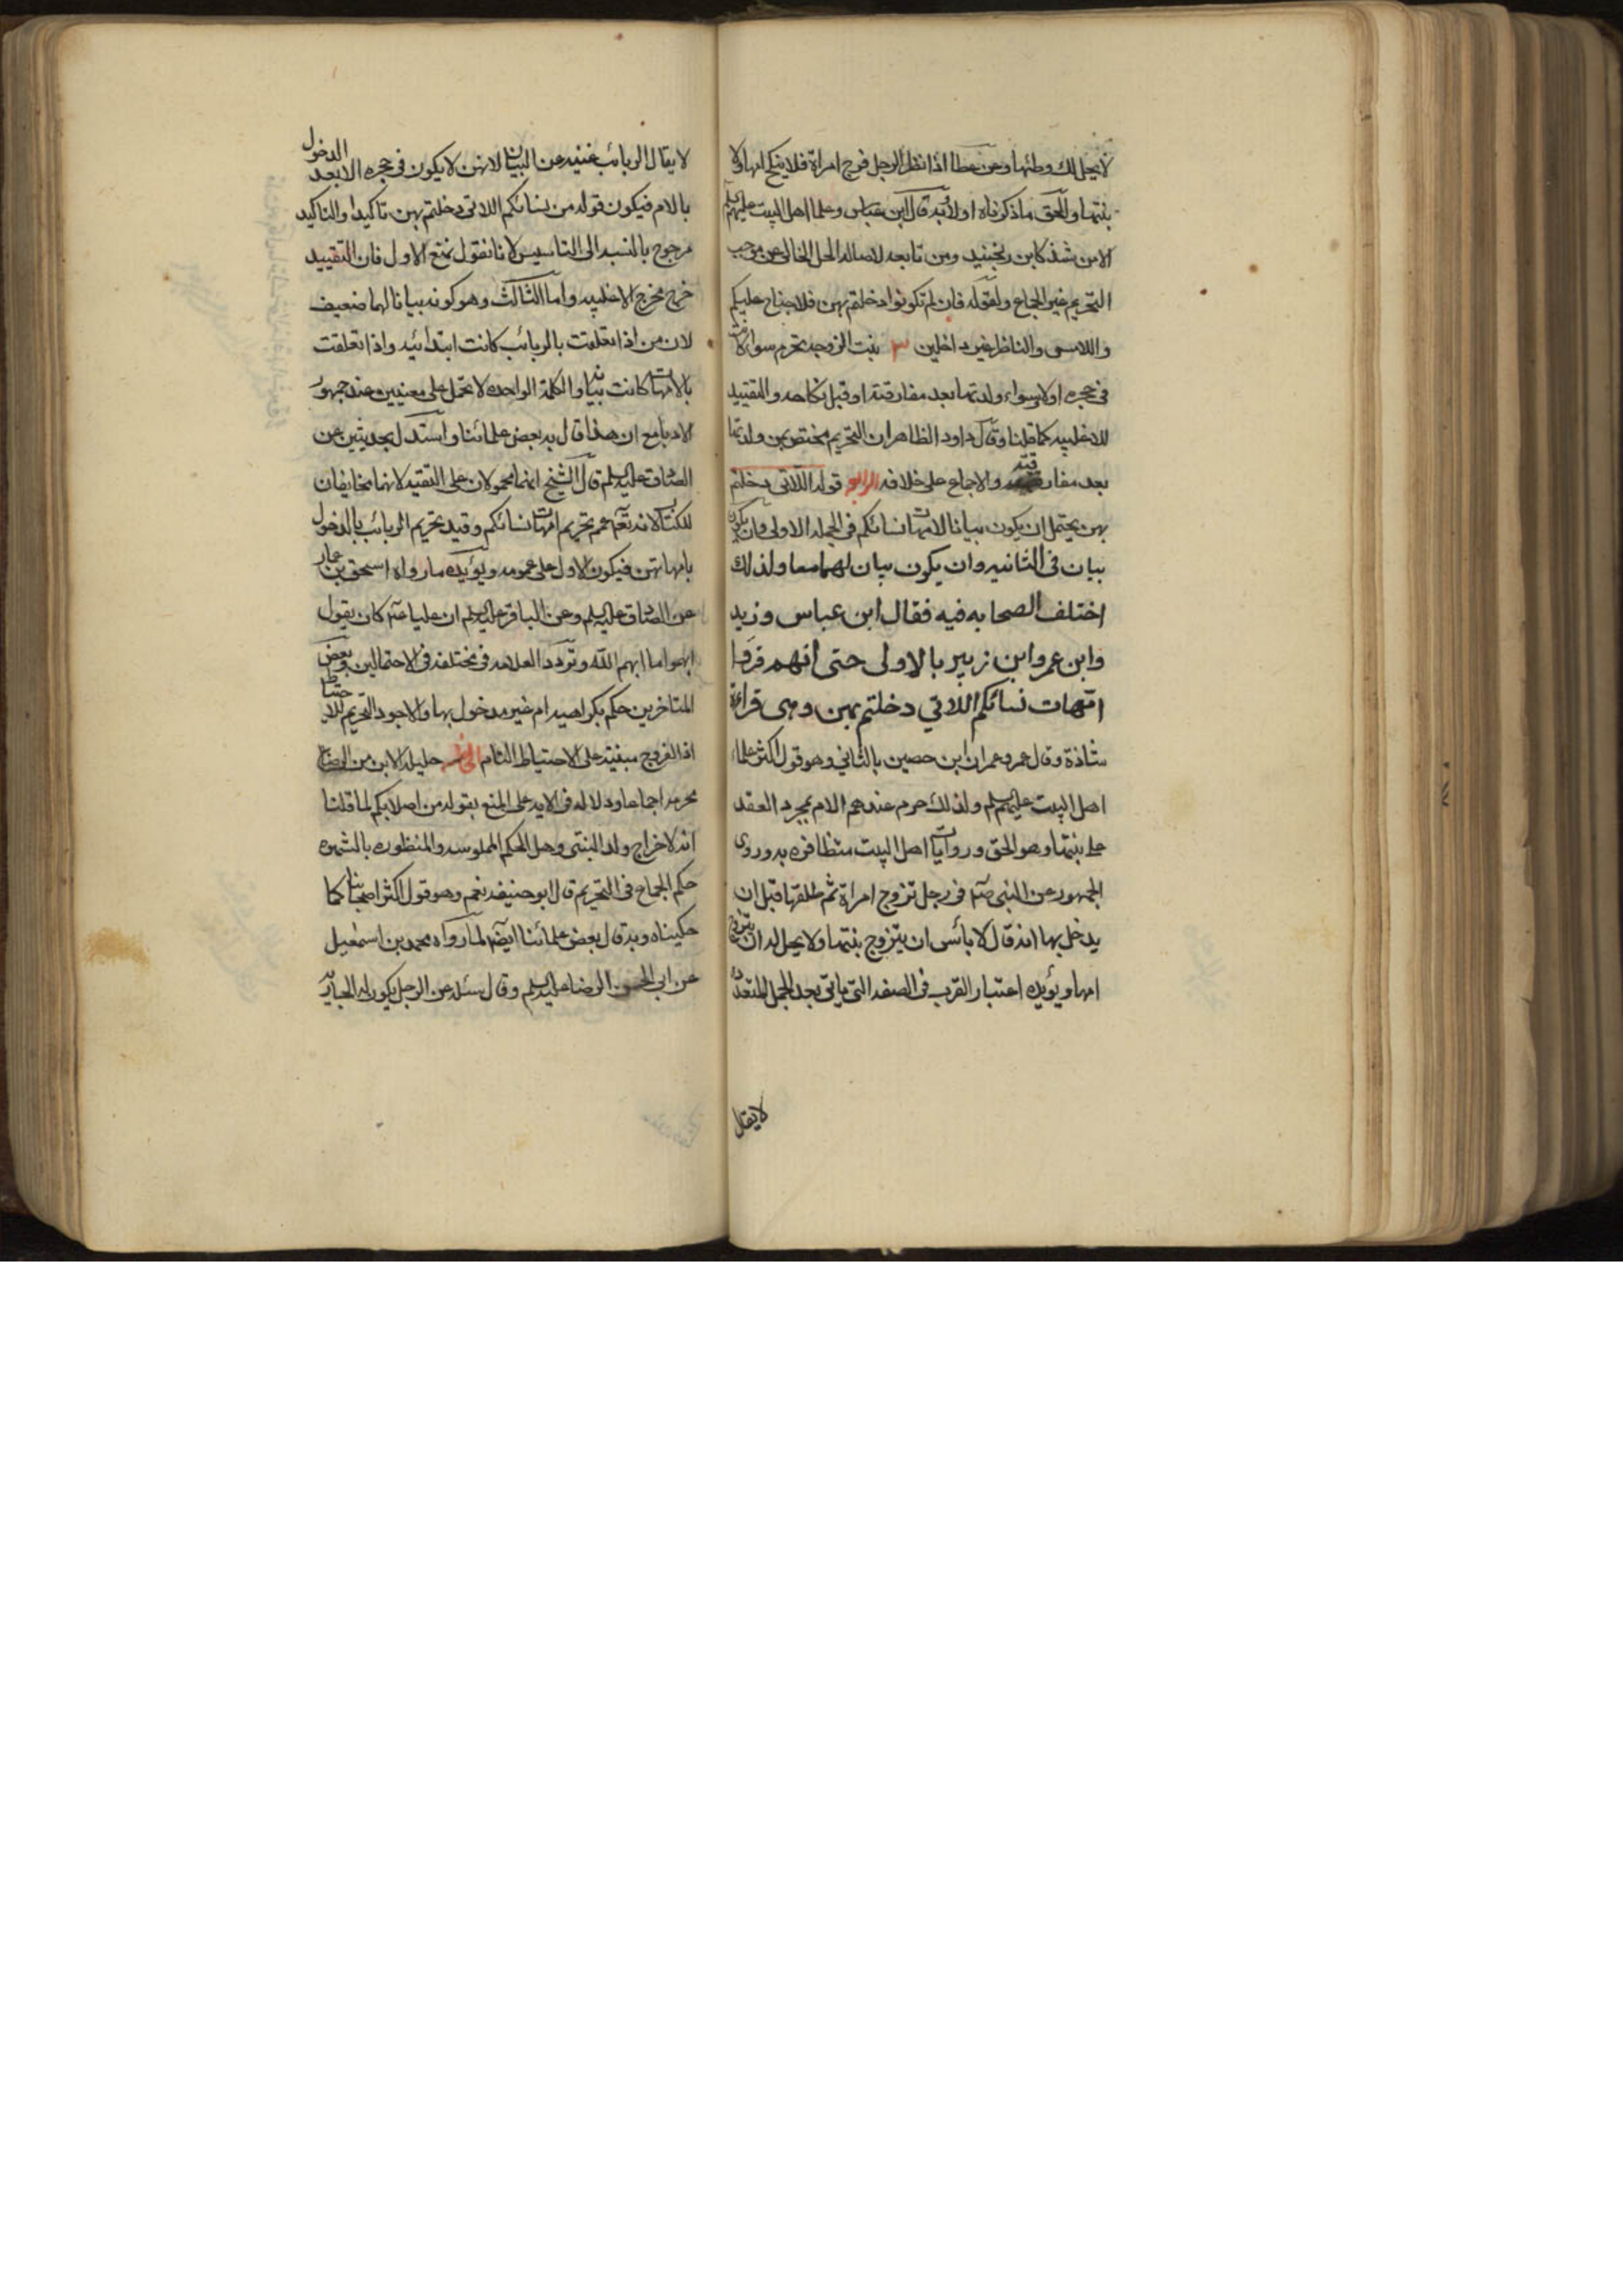 لا يحل لك وطئها وعن عطا اذا نظر الرجل فرج امراة فلا ينكح امها ولا
بنتها والحق ما ذكرناه اولا وبه قال ابن عباس وعلما اهل البيت عليهم السلم
الا من شذ كابن الجنيد ومن تابعه لاصالة الحل الخالى عن موجب
التحريم غير الجماع ولقوله فان لم تكونوا دخلتم بهن فلا جناح عليكم
واللامس والناظر غير داخلين ٣ بنت الزوجه تحرم سواء كانت
فى حجره اولا وسواء ولدتها بعد مفارقته او قبل نكاحه والتقييد
للاغلبيه كما قلنا وقال داود الظاهر ان التحريم مختص بمن ولدتها
بعد مفارقته والاجماع على خلافه الرابع قوله اللاتى دخلتم
بهن يحتمل ان يكون بيانا لامهات نسائكم فى الجمله الاولى وان يكون
بيان فى الثانيه وان يكون بيان لهما معا ولذلك
اختلف الصحابه فيه فقال ابن عباس وزيد
وابن عمر وابن زبير بالاولى حتى انهم قرؤا
امّهات نسائكم اللاتي دخلتم بهن وهى قراءة
شاذة وقال عمر وعمران ابن حصين بالثاني وهو قول اكثر علماء
اهل البيت عليهم السلم ولذلك حرم عندهم الام بمجرد العقد
على بنتها وهو الحق وروايات اهل البيت متظافره به وروى
الجمهور عن النبى صلم فى رجل تزوج امراة ثم طلقها قبل ان
يدخل بها انه قال لا بائس ان يتزوج بنتها ولا يحل له ان يتزوج
امها ويؤيده اعتبار القرب فى الصفه التى ياتى بعد الجمل المتعدده
لا يقال
لا يقال الربائب غنيه عن البيان لانهن لا يكون فى حجره الا بعد الدخول
بالام فيكون قوله من نسائكم اللاتى دخلتم بهن تاكيدا والتاكيد
مرجوح بالنسبه الى التاسيس لانا نقول نمنع الاول فان التقييد
خرج مخرج الاغلبيه واما الثالث وهو كونه بيانا لهما ضعيف
لان من اذا تعلقت بالربائب كانت ابتدائيه واذا تعلقت
بالامهات كانت بيانيه والكلمة الواحده لا تحمل على معنيين عند جمهور
الادبا مع ان هذا قال به بعض علمائنا واستدل بحديثين عن
الصادق عليه السلم قال الشيخ انهما محمولان على التقيه لانهما مخالفان
للكتاب لانه تعم عمم تحريم امهات نسائكم وقيد تحريم الربائب بالدخول
بامهاتهن فيكون الاول على عمومه ويؤيده ما رواه اسحق بن عمار
عن الصادق عليه السلم وعن الباقر عليه السلم ان عليا عم كان يقول
ابهموا ما ابهم الله وتردد العلامه فى مختلفه فى الاحتمالين وبعض
المتاخرين حكم بكراهيه ام غير مدخول بها والاجود التحريم للاحتياط
اذ الفروج مبنية على الاحتياط التام الخامس حليلة الابن من الرضاع
محرمه اجماعا ودلاله فى الايه على المنع بقوله من اصلابكم لما قلنا
انه لاخراج ولد التبنى وهل الحكم الملموسه والمنظوره بالشهوه
حكم الجماع فى التحريم قال ابو حنيفه نعم وهو قول اكثر اصحابنا كما
حكيناه وبه قال بعض علمائنا ايضا لما رواه محمد بن اسمعيل
عن ابى الحسن الرضا عليه السلم وقال سئله عن الرجل يكون له الجاريه